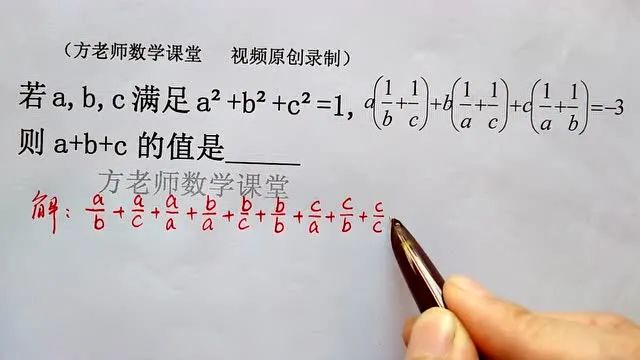 （方老师数学课堂 视频原创录制）
若 a,b,c 满足 a²+b²+c²=1, a(1/b+1/c)+b(1/a+1/c)+c(1/a+1/b)=-3
则 a+b+c 的值是_____
方老师数学课堂
解: a/b+a/c+a/a+b/a+b/c+b/b+c/a+c/b+c/c